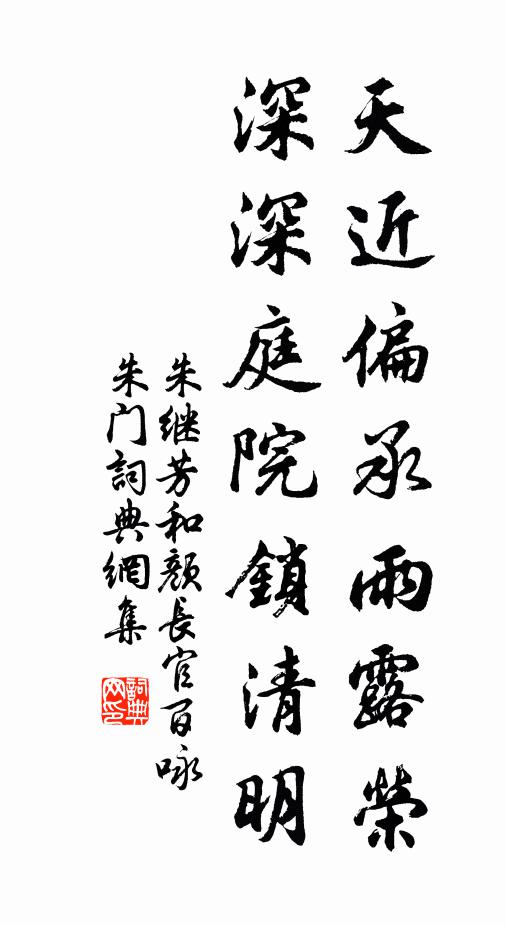 天近偏承雨露榮
深深庭院鎖清明
朱继芳和顏長官百咏
朱门詞典網集
詞典网印